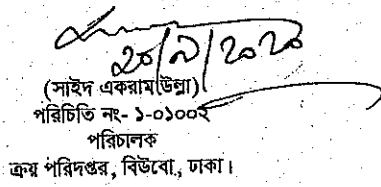 ২০/৯/২০২০
(সাইদ একরাম উল্লা)
পরিচিতি নং- ১-০১০০২
পরিচালক
ক্রয় পরিদপ্তর, বিউবো, ঢাকা।